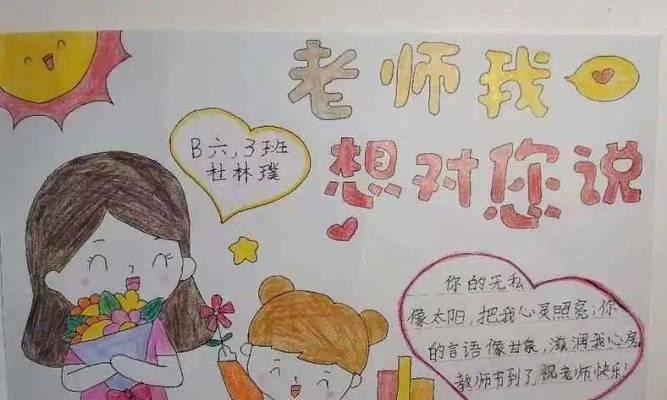 老师我
想对您说
B六，3班
杜林璞
你的无私
像太阳，把我心灵照亮；你
的言语像甘泉，滋润我心房
教师节到了祝老师快乐！